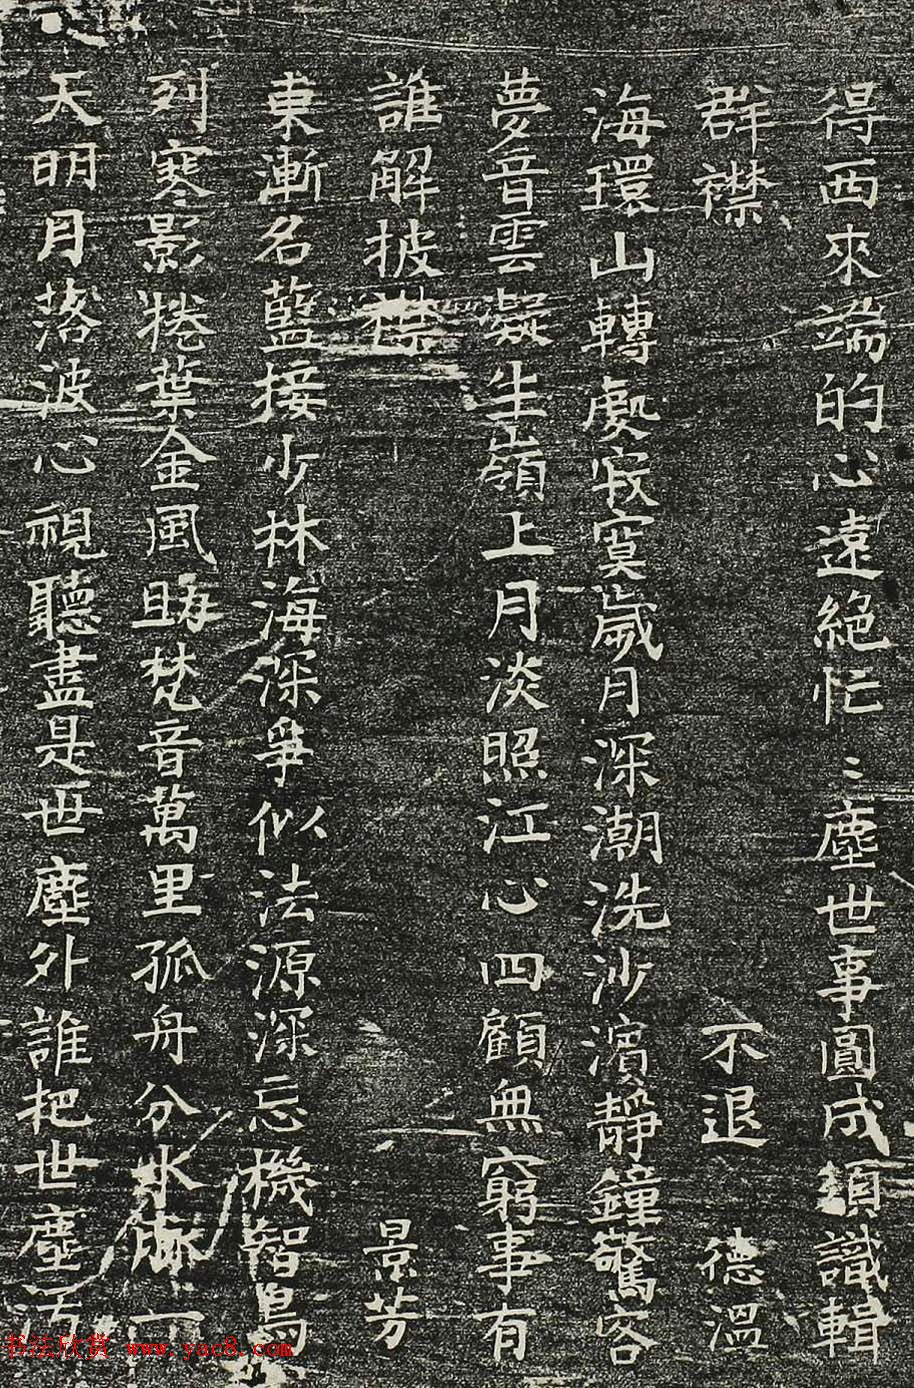 得西來端的心遠絕忙〻塵世事圓成須識輯
群襟 不退 德溫
海環山轉處寂寞歲月深潮洗沙濱靜鐘驚客
夢音雲凝生嶺上月淡照江心四顧無窮事有
誰解披襟 景芳
東漸名藍接少林海深爭似法源深忘機智鳥
列寒影捲葉金風晦梵音萬里孤舟分水 一
天明月落波心視聽盡是世塵外誰把世塵
书法欣赏 www.yac8.com